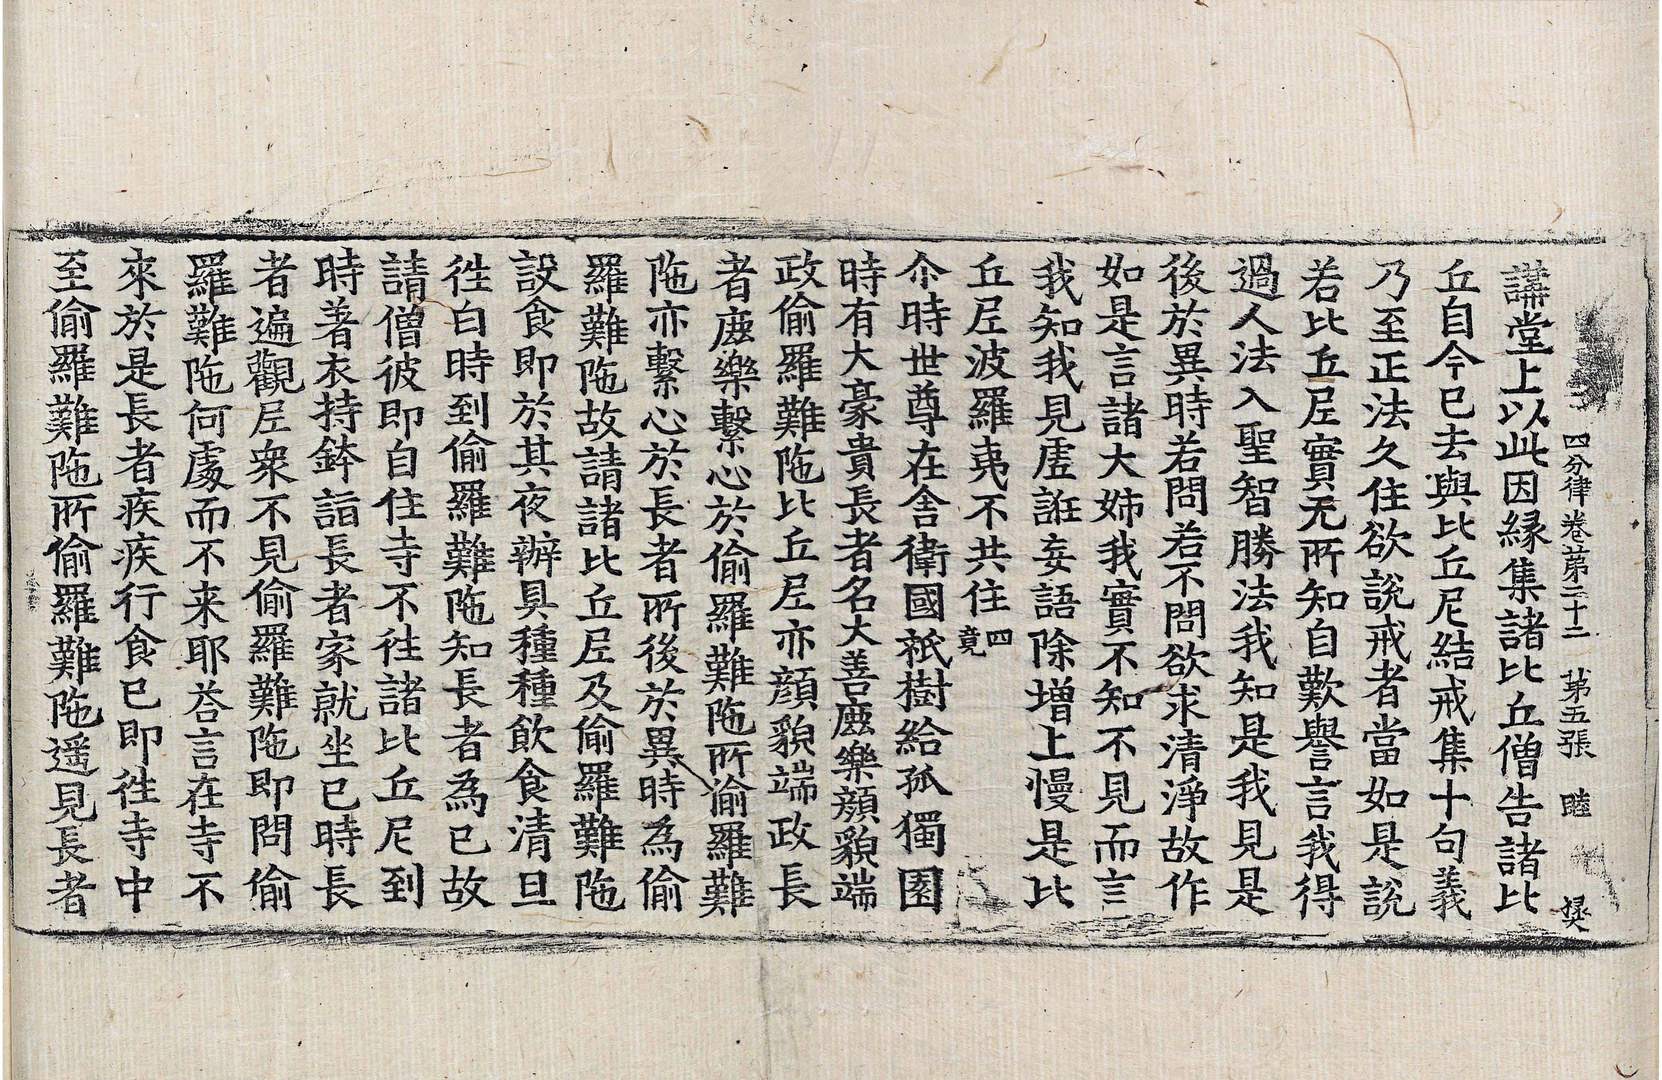 四分律卷苐二十二 苐五張 睦
講堂上以此因緣集諸比丘僧告諸比
丘自今已去與比丘尼結戒集十句義
乃至正法久住欲說戒者當如是說
若比丘尼實无所知自歎譽言我得
過人法入聖智勝法我知是我見是
後於異時若問若不問欲求清淨故作
如是言諸大姉我實不知不見而言
我知我見虛誑妄語除增上慢是比
丘尼波羅夷不共住四竟
尒時世尊在舍衛國祇樹給孤獨園
時有大豪貴長者名大善鹿樂顏貌端
政偷羅難陁比丘尼亦顏貌端政長
者鹿樂繫心於偷羅難陁所偷羅難
陁亦繫心於長者所後於異時為偷
羅難陁故請諸比丘尼及偷羅難陁
設食即於其夜辦具種種飲食清旦
徃白時到偷羅難陁知長者為已故
請僧彼即自住寺不徃諸比丘尼到
時著衣持鉢詣長者家就坐已時長
者遍觀尼衆不見偷羅難陁即問偷
羅難陁何處而不来耶荅言在寺不
來於是長者疾疾行食已即徃寺中
至偷羅難陁所偷羅難陁遥見長者